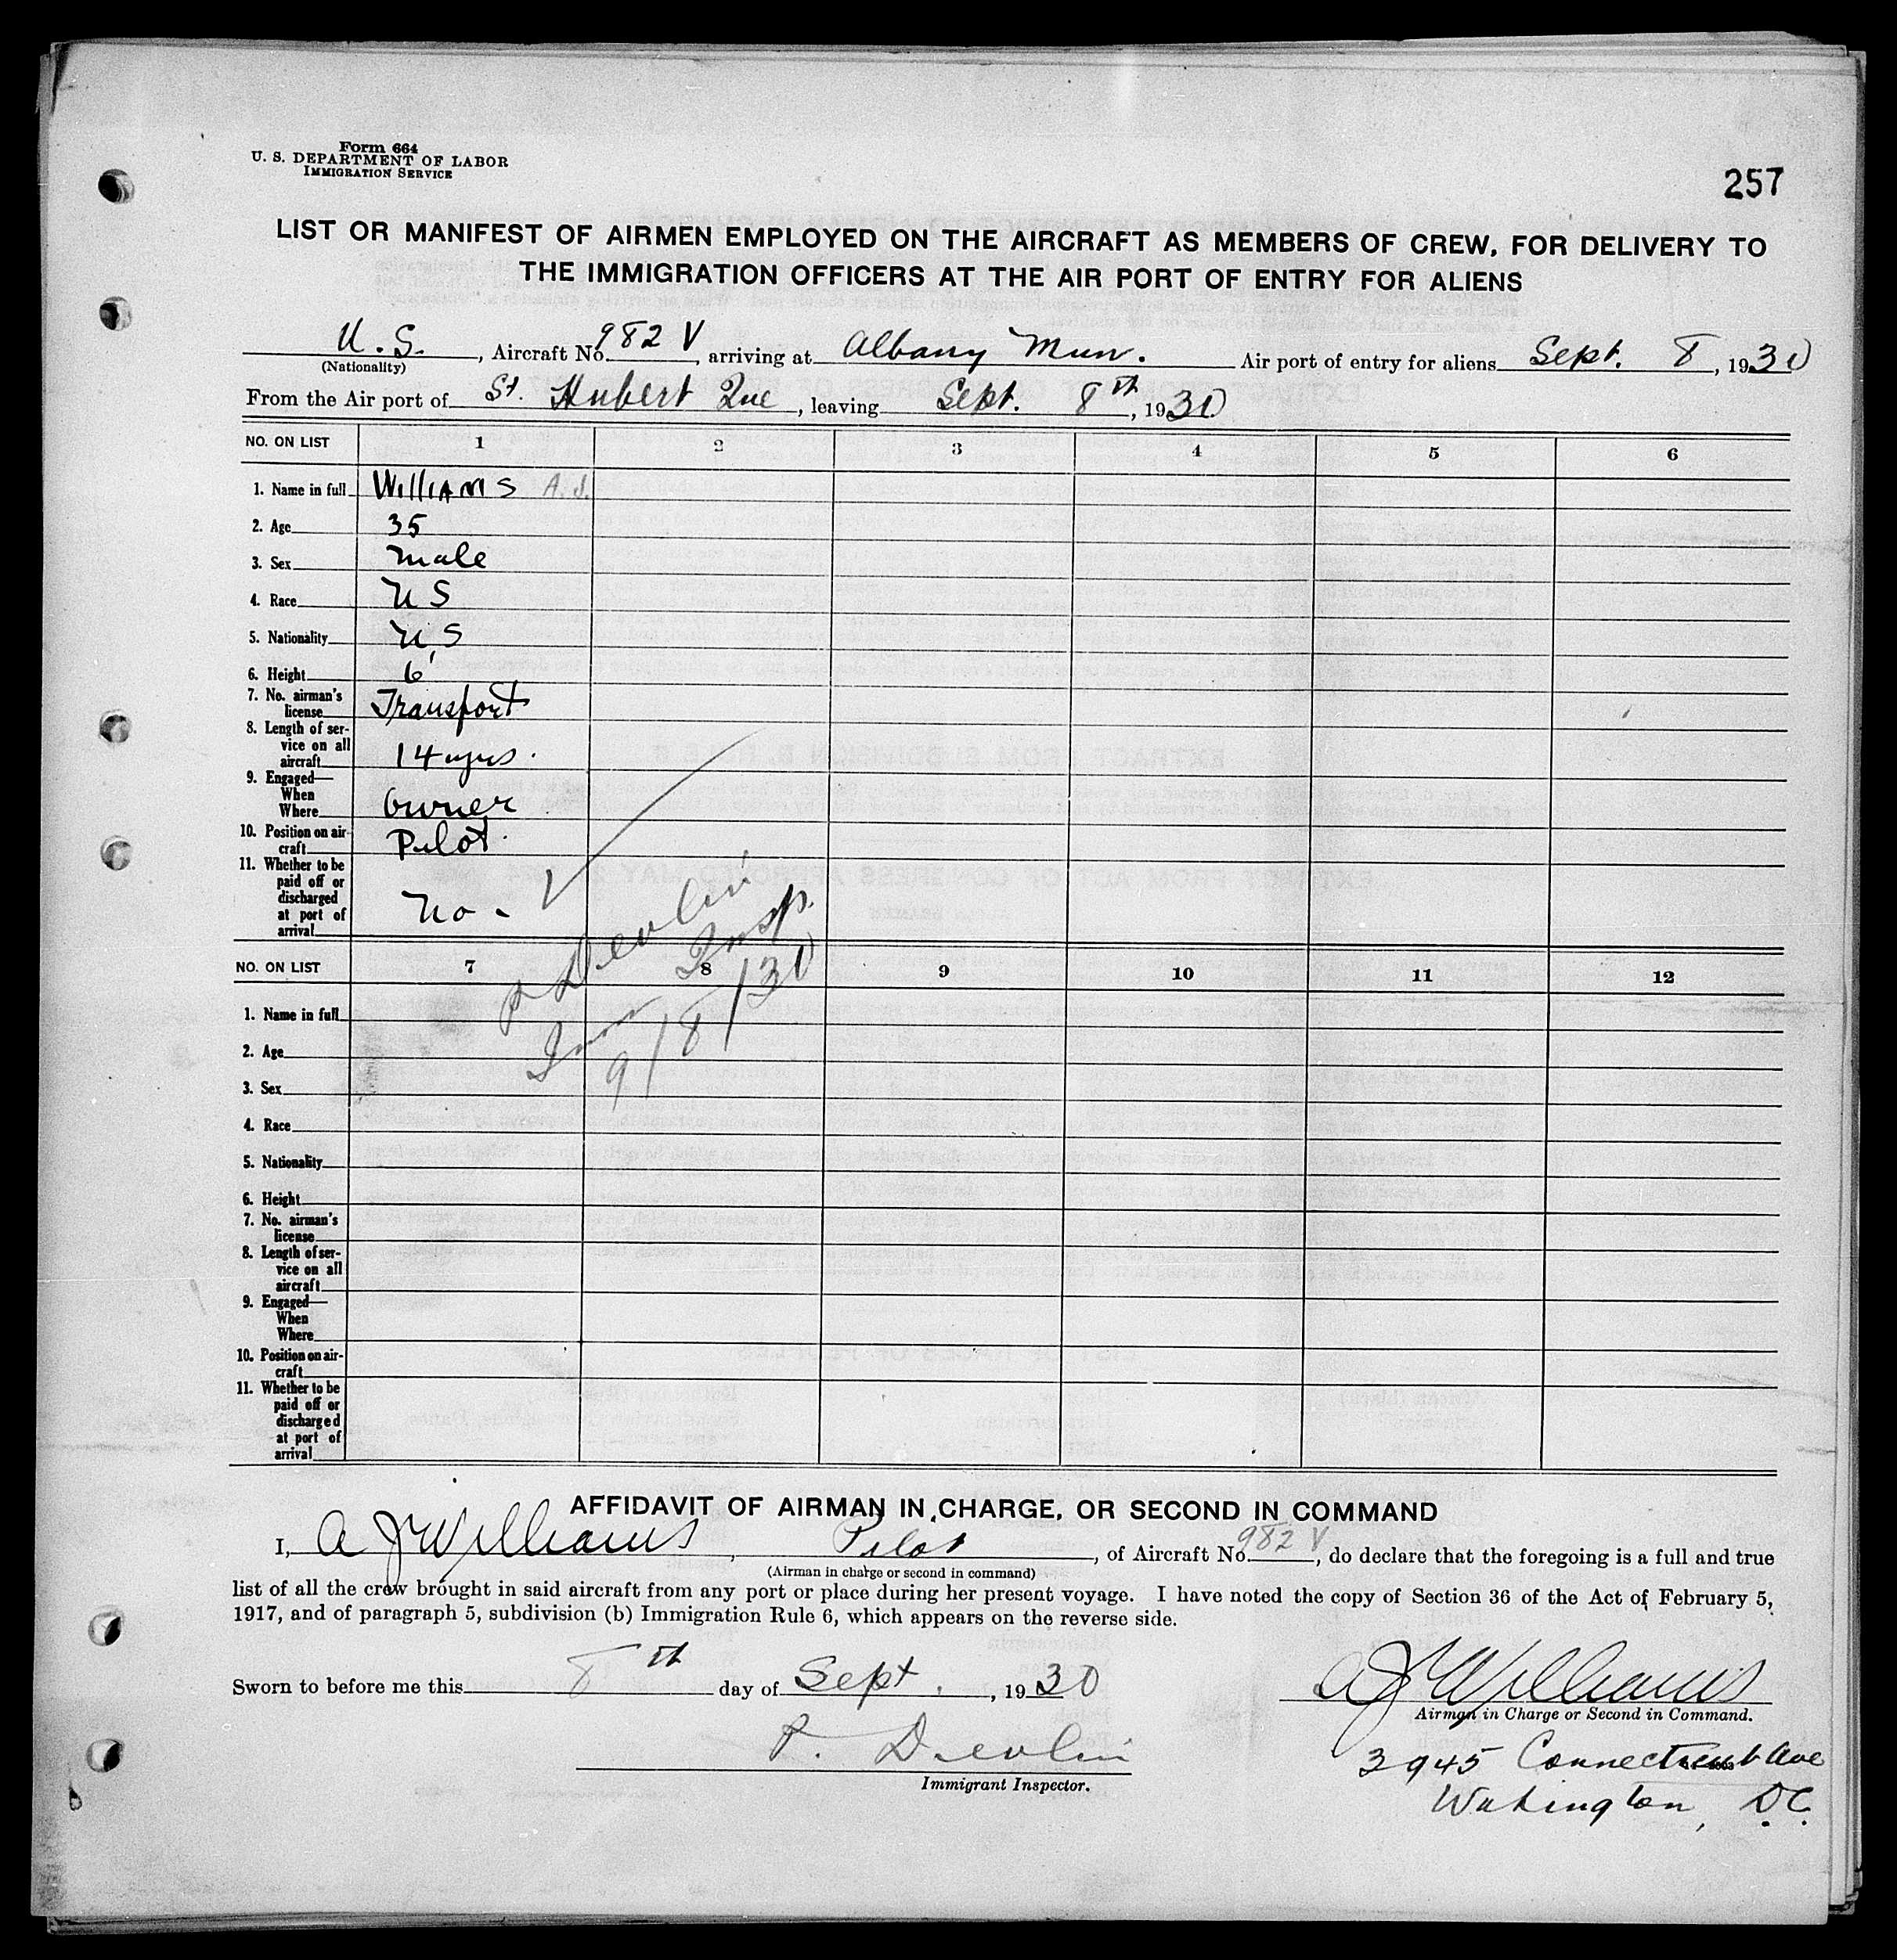 Form 664
U. S. DEPARTMENT OF LABOR
IMMIGRATION SERVICE
257
LIST OR MANIFEST OF AIRMEN EMPLOYED ON THE AIRCRAFT AS MEMBERS OF CREW, FOR DELIVERY TO
THE IMMIGRATION OFFICERS AT THE AIR PORT OF ENTRY FOR ALIENS
U.S. , Aircraft No. 982 V , arriving at Albany Mun. Air port of entry for aliens Sept. 8 , 1930
(Nationality)
From the Air port of St. Hubert Que , leaving Sept. 8th , 1930
NO. ON LIST 1 2 3 4 5 6
1. Name in full Williams A.J.
2. Age 35
3. Sex male
4. Race U S
5. Nationality U.S
6. Height 6'
7. No. airman's
license Transport
8. Length of ser-
vice on all
aircraft 14 yrs.
9. Engaged—
When
Where owner
10. Position on air-
craft Pilot
11. Whether to be
paid off or
discharged
at port of
arrival No -
P Devlin
Imm Insp.
9/8/30
NO. ON LIST 7 8 9 10 11 12
1. Name in full
2. Age
3. Sex
4. Race
5. Nationality
6. Height
7. No. airman's
license
8. Length of ser-
vice on all
aircraft
9. Engaged—
When
Where
10. Position on air-
craft
11. Whether to be
paid off or
discharged
at port of
arrival
AFFIDAVIT OF AIRMAN IN CHARGE, OR SECOND IN COMMAND
I, A J Williams , Pilot , of Aircraft No. 982 V , do declare that the foregoing is a full and true
(Airman in charge or second in command)
list of all the crew brought in said aircraft from any port or place during her present voyage. I have noted the copy of Section 36 of the Act of February 5,
1917, and of paragraph 5, subdivision (b) Immigration Rule 6, which appears on the reverse side.
Sworn to before me this 8th day of Sept. , 1930
A J Williams
Airman in Charge or Second in Command.
P. Devlin
Immigrant Inspector.
3945 Connecticut Ave
Wahington, D.C.